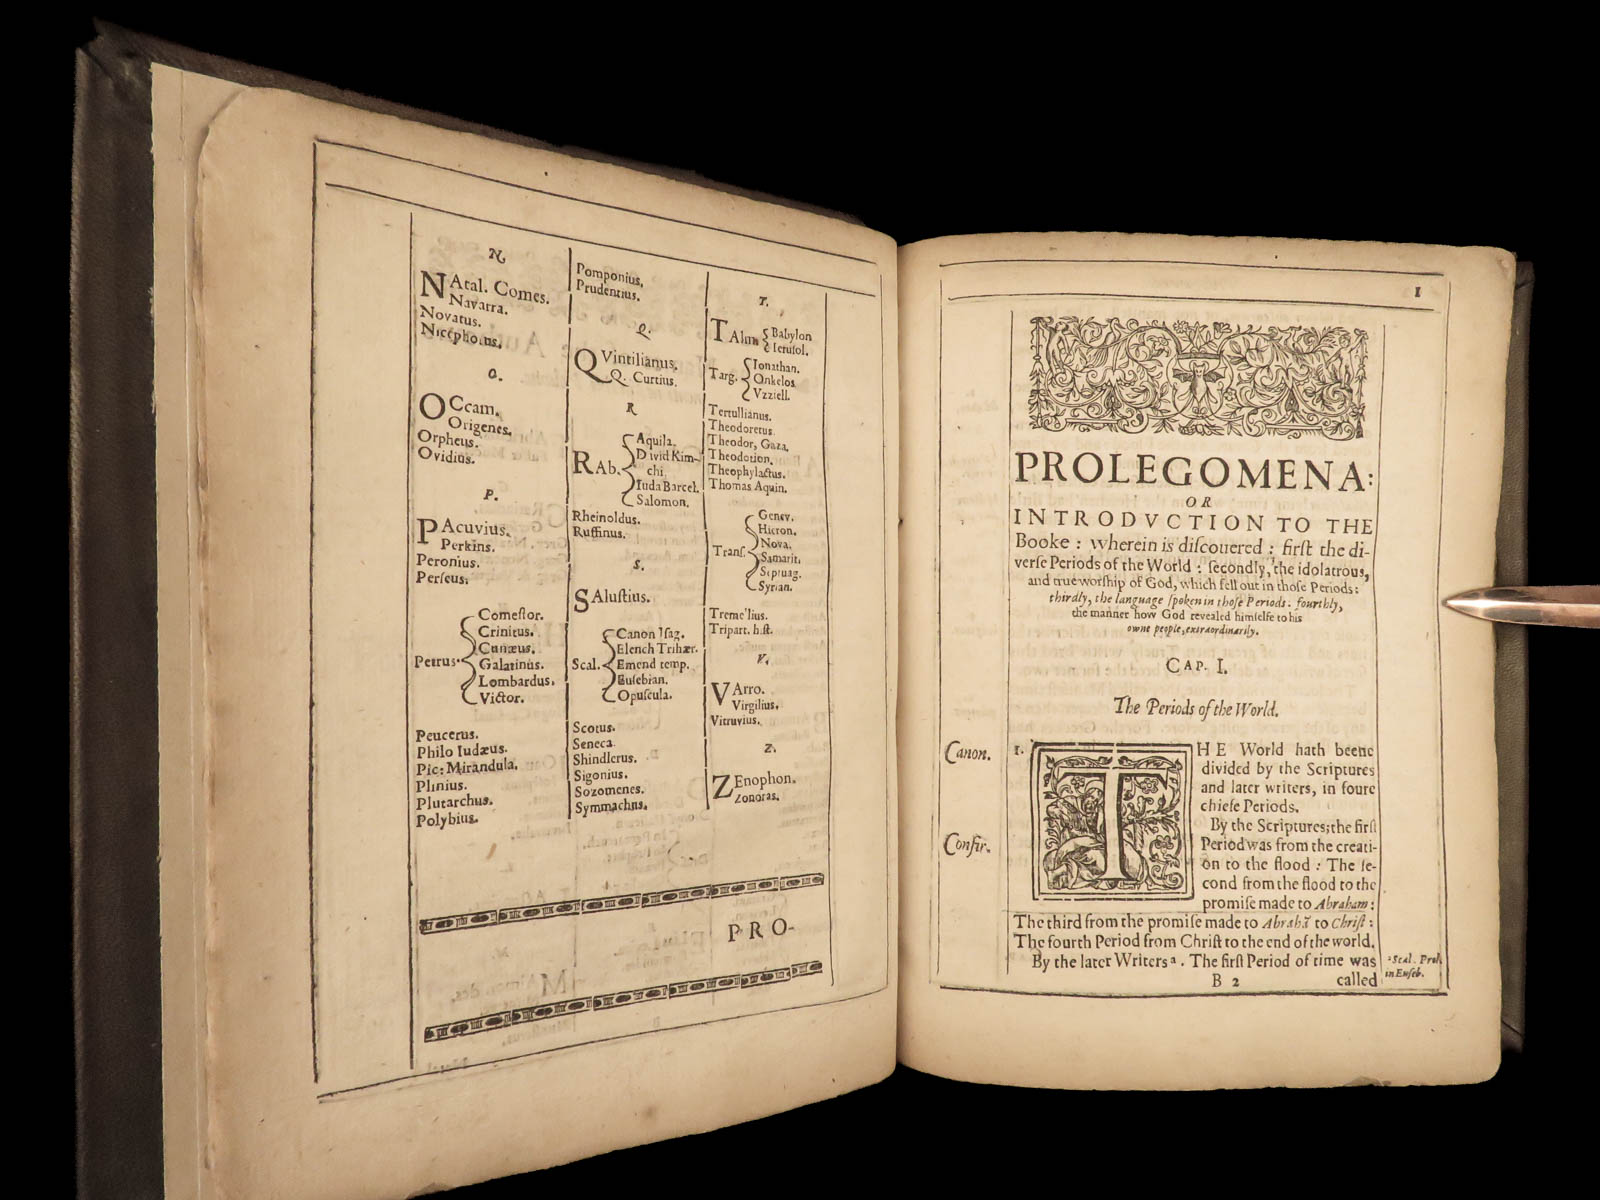 N
NAtal. Comes.
Navarra.
Novatus.
Nicephorus.
O.
OCcam.
Origenes.
Orpheus.
Ovidius.
P.
PAcuvius.
Perkins.
Peronius.
Perſeus.
Petrus
Comeſtor.
Crinitus.
Cunæus.
Galatinus.
Lombardus.
Victor.
Peucerus.
Philo Iudæus.
Pic: Mirandula.
Plinius.
Plutarchus.
Polybius.
Pomponius.
Prudentius.
Q.
QVintilianus.
Q. Curtius.
R
RAb.
Aquila.
David Kim-
chi.
Iuda Barcel.
Salomon.
Rheinoldus.
Ruffinus.
S.
SAluſtius.
Scal.
Canon Iſag.
Elench Trihær.
Emend temp.
Euſebian.
Opuſcula.
Scotus.
Seneca.
Shindlerus.
Sigonius.
Sozomenes.
Symmachus.
T.
TAlm
Babylon
Ieruſol.
Targ.
Ionathan.
Onkelos
Vzziell.
Tertullianus.
Theodoretus.
Theodor, Gaza.
Theodotion.
Theophylactus.
Thomas Aquin.
Tranſ.
Genev.
Hieron.
Nova.
Samarit.
Septuag.
Syrian.
Tremellius.
Tripart. hiſt.
V.
VArro.
Virgilius.
Vitruvius.
Z.
ZEnophon.
Zonoras.
PRO-
1
PROLEGOMENA:
OR
INTRODVCTION TO THE
Booke: wherein is diſcouered: firſt the di-
verſe Periods of the World: ſecondly, the idolatrous,
and true worſhip of God, which fell out in thoſe Periods:
thirdly, the language ſpoken in thoſe Periods. fourthly,
the manner how God revealed himſelfe to his
owne people, extraordinarily.
CAP. I.
The Periods of the World.
Canon.
1.
THE World hath beene
divided by the Scriptures
and later writers, in foure
chiefe Periods.
Confir.
By the Scriptures; the firſt
Period was from the creati-
on to the flood: The ſe-
cond from the flood to the
promiſe made to Abraham:
The third from the promiſe made to Abrahā to Chriſt:
The fourth Period from Chriſt to the end of the world.
By the later Writers a. The firſt Period of time was
a Scal. Prol.
in Euſeb.
B 2
called